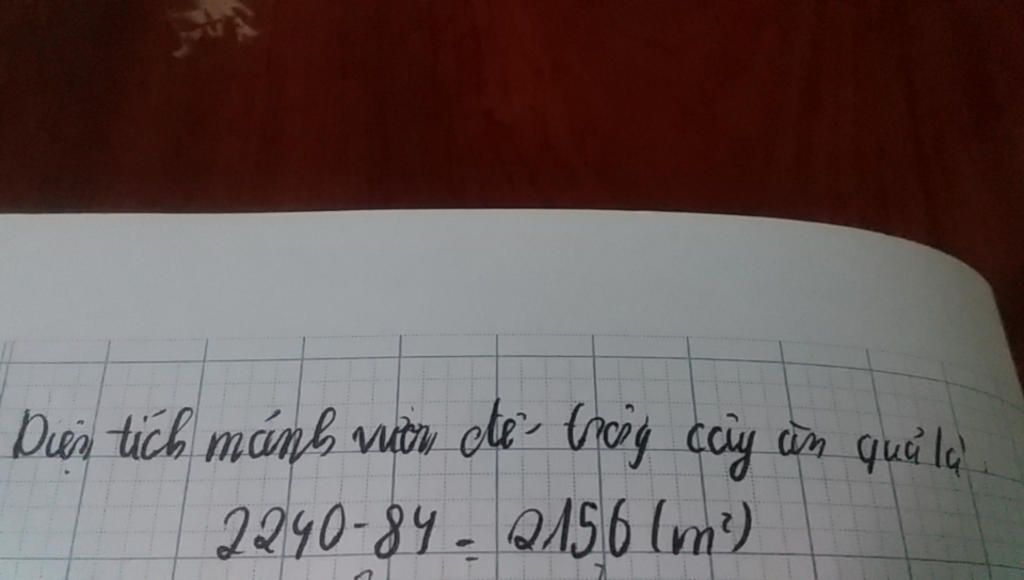 Diện tích mảnh vườn để trồng cây ăn quả là
2240 - 84 = 2156 (m²)